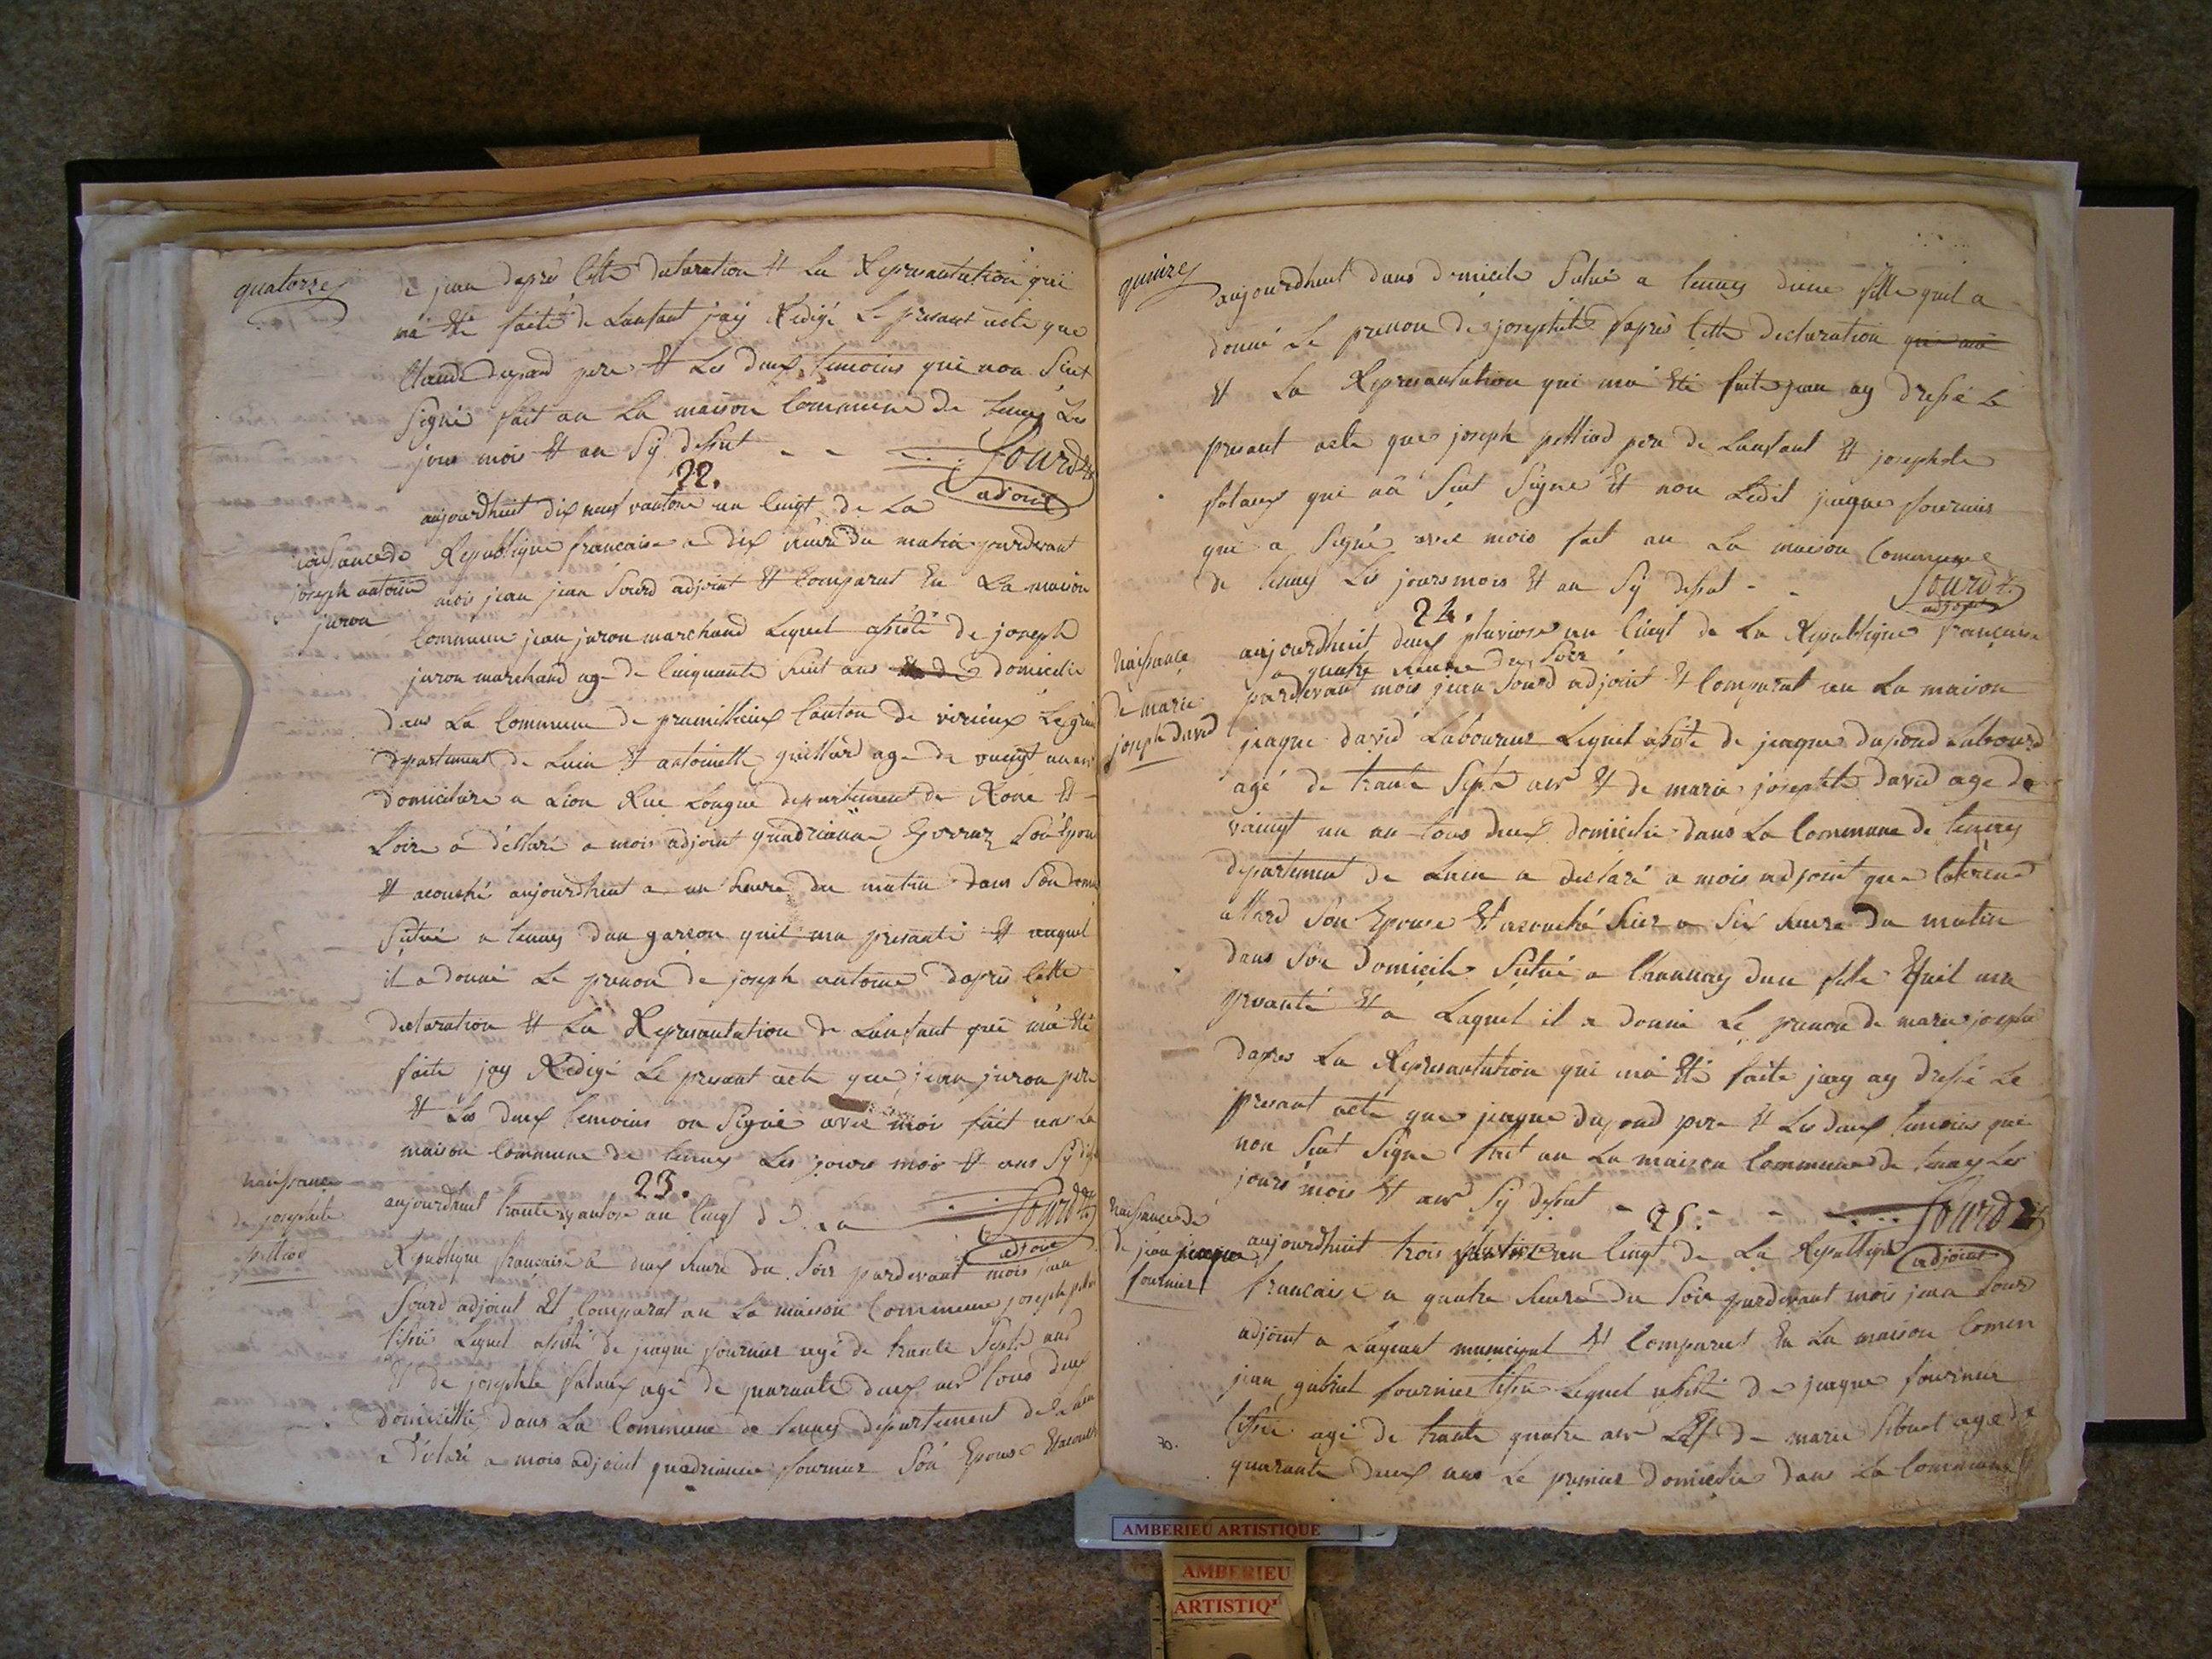 quatorze
de jean daprè cette declaration et la Represantation qui
ma été faite de Lanfant jay Rédigé le presant acte que
Claude dupand pere et les deux temoins qui non seut
signé fait an la maison commune de tenay les
jour mois et an sy desut
Sourd
adjoint
22.
aujourdhuit dix neuf vantose an cinqt de la
naissance de
joseph antoine
juron
Republique francaise a dix heure du matin pardevant
mois jean jean Sourd adjoint et comparut en la maison
commune jean juron marchand lequel assisté de joseph
juron marchand age de cinquante huit ans et de domicilie
dans la commune de premillieux canton de virieux le grand
departement de Lain et antoinette guillard age de vaingt un ans
domiciliere a Lion Rue Longue departement de Rone et
Loire a déclaré a mois adjoint quadrianne son epouse
et acouché aujourdhuit a un heure du matin dans son domi
situé a tenay dun garson quil ma presanté et auquel
il a donné le prenon de joseph antoine daprès cette
declaration et la Represantation de Lanfant qui ma été
faite jay Rédigé le presant acte que jean juron pere
et les deux temoins on signé avec moi fait an la
maison commune de tenay les jours mois et ans sy desut
23.
naissance
de josephte
pettiod
aujourdhuit trante vantose an cinqt de la
Sourd
adjoint
Republique francaise a deux heure du soir pardevant mois jean
Sourd adjoint et comparut an la maison commune joseph
tissié lequel assisté de jaque fournier agé de trante septe ans
et de josephte agé de quarante deux ans tous deux
domicilié dans la commune de tenay departement de Lain
a déclaré a mois adjoint quadrianne fournier son epouse et acouché
quinze
aujourdhuit dans domicile situé a tenay dune fille quil a
donné le prenon de josephte daprès cette declaration qui ma
et la Represantation qui ma été faite jean ay dressé le
presant acte que joseph pettiod pere de Lanfant et josephte
qui nâ seut signe et non ledit jaque fournier
qui a signé avec mois fait an la maison commune
de tenay les jours mois et an sy desut
Sourd
adjoint
24.
naissance
de marie
joseph david
aujourdhuit deux pluviose an cinqt de la Republique francaise
a quatre heure du soir
pardevant mois jean Sourd adjoint et comparut an la maison
jaque david Laboureur lequel assisté de jaque dupond Labourd
agé de trante septe ans et de marie josephte david age de
vaingt un an tous deux domicilié dans la commune de tenay
departement de Lain a declaré a mois adjoint que
allard son epouse et acouché hier a six heure du matin
dans son domicile situé a Channay dune fille quil ma
presanté et a laquel il a donné le prenon de marie josephe
dapres la Represantation qui ma été faite jay ay dressé le
presant acte que jaque dupond pere et les deux temoins qui
non seut signe fait an la maison commune de tenay les
jours mois et ans sy desut
25.
Sourd
adjoint
naissance de
de jean jaque
fournier
aujourdhuit trois an cinqt de la Republique
francaise a quatre heure du soir pardevant mois jean Sourd
adjoint a Lagent municipal et comparut en la maison comun
jean gabriel fournier tissié lequel assisté de jaque fournier
tissié agé de trante quatre ans et de marie age de
quarante deux ans le premier domicilié dans la commune
AMBERIEU ARTISTIQUE
AMBERIEU
ARTISTIQ